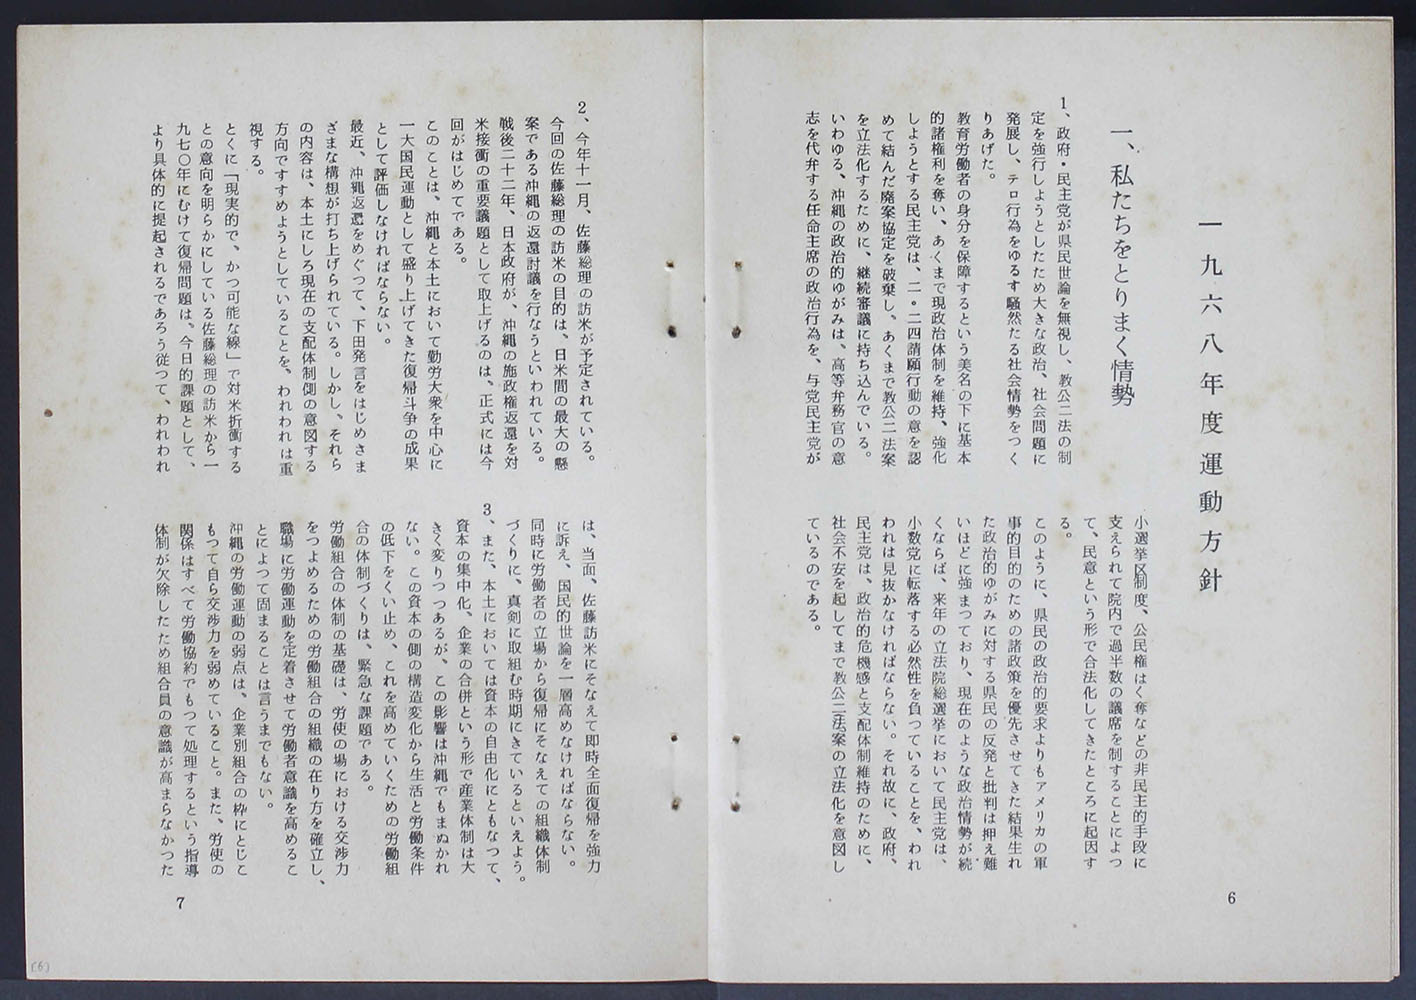 一九六八年度運動方針
一、私たちをとりまく情勢
1、政府・民主党が県民世論を無視し、教公二法の制
定を強行しようとしたため大きな政治、社会問題に
発展し、テロ行為をゆるす騒然たる社会情勢をつく
りあげた。
教育労働者の身分を保障するという美名の下に基本
的諸権利を奪い、あくまで現政治体制を維持、強化
しようとする民主党は、二・二四請願行動の意を認
めて結んだ廃案協定を破棄し、あくまで教公二法案
を立法化するために、継続審議に持ち込んでいる。
いわゆる、沖縄の政治的ゆがみは、高等弁務官の意
志を代弁する任命主席の政治行為を、与党民主党が
小選挙区制度、公民権はく奪などの非民主的手段に
支えられて院内で過半数の議席を制することによつ
て、民意という形で合法化してきたところに起因す
る。
このように、県民の政治的要求よりもアメリカの軍
事的目的のための諸政策を優先させてきた結果生れ
た政治的ゆがみに対する県民の反発と批判は押え難
いほどに強まつており、現在のような政治情勢が続
くならば、来年の立法院総選挙において民主党は、
小数党に転落する必然性を負っていることを、われ
われは見抜かなければならない。それ故に、政府、
民主党は、政治的危機感と支配体制維持のために、
社会不安を起してまで教公二法案の立法化を意図し
ているのである。
6
2、今年十一月、佐藤総理の訪米が予定されている。
今回の佐藤総理の訪米の目的は、日米間の最大の懸
案である沖縄の返還討議を行なうといわれている。
戦後二十二年、日本政府が、沖縄の施政権返還を対
米接衝の重要議題として取上げるのは、正式には今
回がはじめてである。
このことは、沖縄と本土において勤労大衆を中心に
一大国民運動として盛り上げてきた復帰斗争の成果
として評価しなければならない。
最近、沖縄返還をめぐつて、下田発言をはじめさま
ざまな構想が打ち上げられている。しかし、それら
の内容は、本土にしろ現在の支配体制側の意図する
方向ですすめようとしていることを、われわれは重
視する。
とくに「現実的で、かつ可能な線」で対米折衝する
との意向を明らかにしている佐藤総理の訪米から一
九七〇年にむけて復帰問題は、今日的課題として、
より具体的に提起されるであろう従つて、われわれ
は、当面、佐藤訪米にそなえて即時全面復帰を強力
に訴え、国民的世論を一層高めなければならない。
同時に労働者の立場から復帰にそなえての組織体制
づくりに、真剣に取組む時期にきているといえよう。
3、また、本土においては資本の自由化にともなつて、
資本の集中化、企業の合併という形で産業体制は大
きく変りつつあるが、この影響は沖縄でもまぬかれ
ない。この資本の側の構造変化から生活と労働条件
の低下をくい止め、これを高めていくための労働組
合の体制づくりは、緊急な課題である。
労働組合の体制の基礎は、労使の場における交渉力
をつよめるための労働組合の組織の在り方を確立し、
職場に労働運動を定着させて労働者意識を高めるこ
とによつて固まることは言うまでもない。
沖縄の労働運動の弱点は、企業別組合の枠にとじこ
もつて自ら交渉力を弱めていること。また、労使の
関係はすべて労働協約でもつて処理するという指導
体制が欠除したため組合員の意識が高まらなかつた
7
(6)